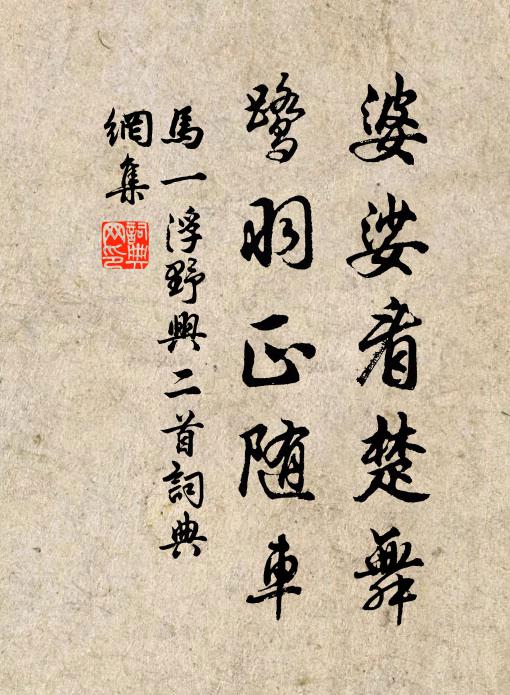 婆娑看楚舞
鹭羽正随車
馬一浮野興二首詞典
網集
詞典網印